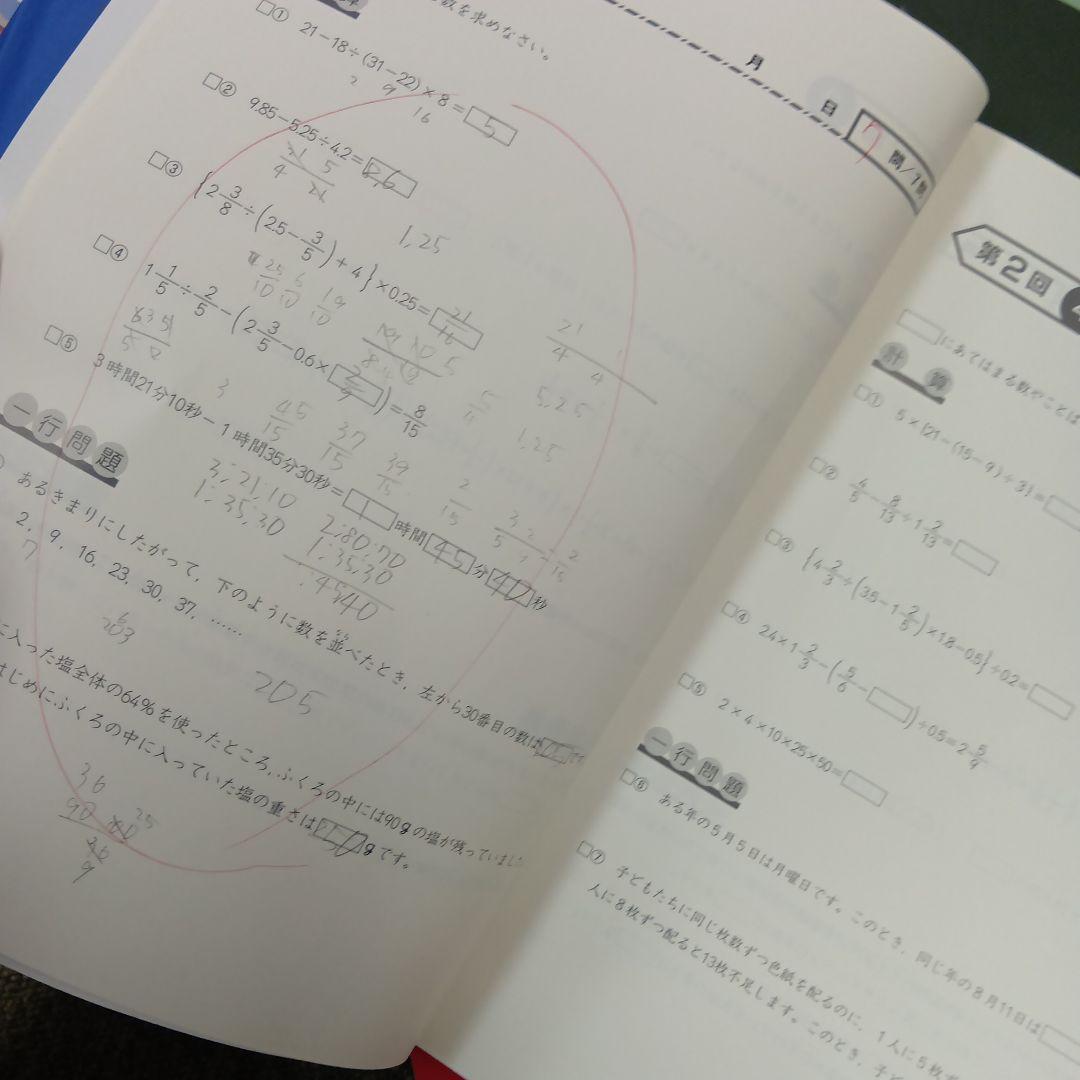 数を求めなさい。
月
日
7問/7問
□① 21−18÷(31−22)×8=5
2 9 16
□② 9.85−5.25÷4.2=8.6
1.25
□③ {2 3/8÷(2.5−3/5)+4}×0.25=21/16
25/10 6/10 19/10
21/4
□④ 1 1/5÷2/5−(2 3/5−0.6×□)=8/15
5.25
1.25
3 45/15 37/15 39/15 2/15
□⑤ 3時間21分10秒−1時間35分30秒=1時間45分40秒
3:21:10
1:35:30
2:80:70
1:35:30
:4540
一行問題
あるきまりにしたがって，下のように数を並べたとき，左から30番目の数は
2，9，16，23，30，37，……
7
203
205
に入った塩全体の64%を使ったところ，ふくろの中には90gの塩が残っていました
はじめにふくろの中に入っていた塩の重さは250gです。
36
90
25
9
第2回
□にあてはまる数やことば
計算
□① 5×{21−(15−9)÷3}=□
□② 4/5−8/13÷1 2/13=□
□③ {4 2/3÷(3.5−1 2/5)×1.8−0.5}÷0.2=□
□④ 2.4×1 2/3−(5/6−□)÷0.5=2 5/9
□⑤ 2×4×10×25×50=□
一行問題
□⑥ ある年の5月5日は月曜日です。このとき，同じ年の8月11日は□
□⑦ 子どもたちに同じ枚数ずつ色紙を配るのに，1人に5枚ず
人に8枚ずつ配ると13枚不足します。このとき，子ど